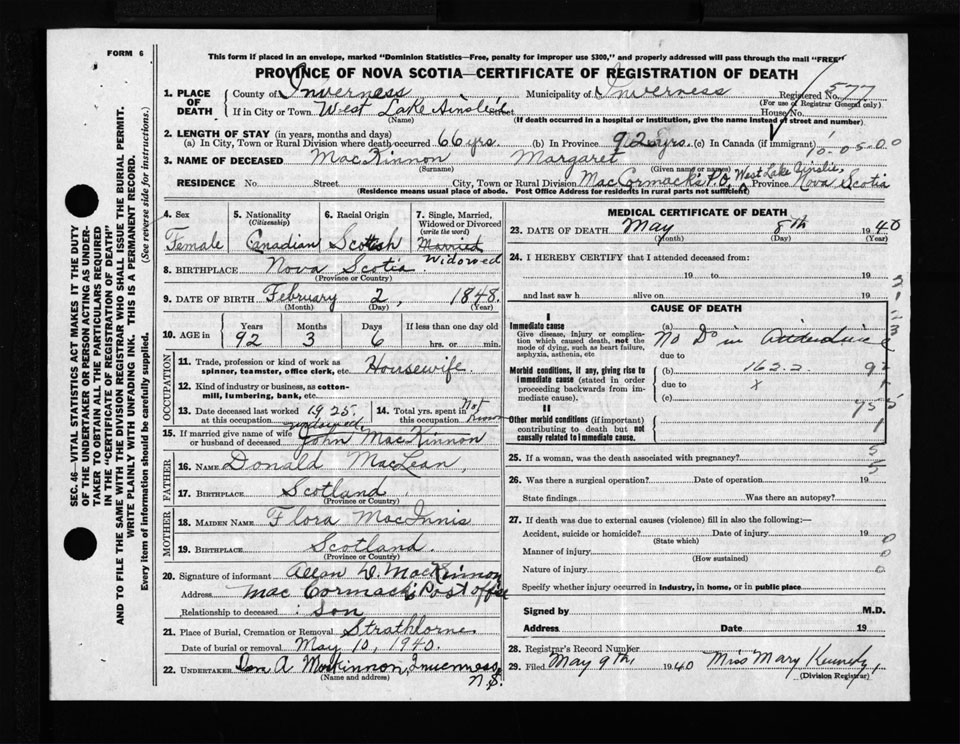 FORM 6
This form if placed in an envelope, marked "Dominion Statistics—Free, penalty for improper use $300," and properly addressed will pass through the mail "FREE"
PROVINCE OF NOVA SCOTIA—CERTIFICATE OF REGISTRATION OF DEATH
1. PLACE OF DEATH
County of Inverness Municipality of Inverness Registered No. 577
(For use of Registrar General only)
If in City or Town West Lake Ainslie Street House No.
(Name) (If death occurred in a hospital or institution, give the name instead of street and number)
2. LENGTH OF STAY (in years, months and days)
(a) In City, Town or Rural Division where death occurred 66 yrs. (b) In Province 92 yrs. (c) In Canada (if immigrant)
3. NAME OF DECEASED MacKinnon Margaret
(Surname) (Given name or names)
RESIDENCE No. Street City, Town or Rural Division MacCormack's P.O. West Lake Ainslie, Province Nova Scotia
(Residence means usual place of abode. Post Office Address for residents in rural parts not sufficient)
4. Sex Female
5. Nationality (Citizenship) Canadian
6. Racial Origin Scottish
7. Single, Married, Widowed or Divorced (write the word) Married Widowed
8. BIRTHPLACE Nova Scotia
(Province or Country)
9. DATE OF BIRTH February 2, 1848.
(Month) (Day) (Year)
10. AGE in Years 92 Months 3 Days 6 If less than one day old hrs. or min.
OCCUPATION
11. Trade, profession or kind of work as spinner, teamster, office clerk, etc. Housewife.
12. Kind of industry or business, as cotton-mill, lumbering, bank, etc.
13. Date deceased last worked at this occupation 1925.
14. Total yrs. spent in this occupation Not Known
15. If married give name of wife or husband of deceased John MacKinnon
FATHER
16. NAME Donald MacLean,
17. BIRTHPLACE Scotland
(Province or Country)
MOTHER
18. MAIDEN NAME Flora MacInnis
19. BIRTHPLACE Scotland.
(Province or Country)
20. Signature of informant Allan D. MacKinnon
Address MacCormack's Post office
Relationship to deceased : Son
21. Place of Burial, Cremation or Removal Strathlorne
Date of burial or removal May 10, 1940.
22. UNDERTAKER Dan A. MacKinnon, Inverness, N.S.
(Name and address)
MEDICAL CERTIFICATE OF DEATH
23. DATE OF DEATH May 8th 1940
(Month) (Day) (Year)
24. I HEREBY CERTIFY that I attended deceased from:
19 to 19
and last saw h alive on 19
CAUSE OF DEATH
I
Immediate cause
Give disease, injury or complication which caused death, not the mode of dying, such as heart failure, asphyxia, asthenia, etc
(a) No Dr in attendance
due to
Morbid conditions, if any, giving rise to immediate cause (stated in order proceeding backwards from immediate cause).
(b) 162.2.
due to x
(c)
II
Other morbid conditions (if important) contributing to death but not causally related to immediate cause.
25. If a woman, was the death associated with pregnancy?
26. Was there a surgical operation? Date of operation 19
State findings Was there an autopsy?
27. If death was due to external causes (violence) fill in also the following:—
Accident, suicide or homicide? Date of injury 19
(State which)
Manner of injury
(How sustained)
Nature of injury
Specify whether injury occurred in industry, in home, or in public place
Signed by M.D.
Address Date 19
28. Registrar's Record Number
29. Filed May 9th 1940 Miss Mary Kennedy,
(Division Registrar)
SEC. 46—VITAL STATISTICS ACT MAKES IT THE DUTY OF THE UNDERTAKER OR PERSON ACTING AS UNDERTAKER TO OBTAIN ALL THE PARTICULARS REQUIRED IN THE "CERTIFICATE OF REGISTRATION OF DEATH"
AND TO FILE THE SAME WITH THE DIVISION REGISTRAR WHO SHALL ISSUE THE BURIAL PERMIT.
WRITE PLAINLY WITH UNFADING INK. THIS IS A PERMANENT RECORD.
Every item of information should be carefully supplied. (See reverse side for instructions.)